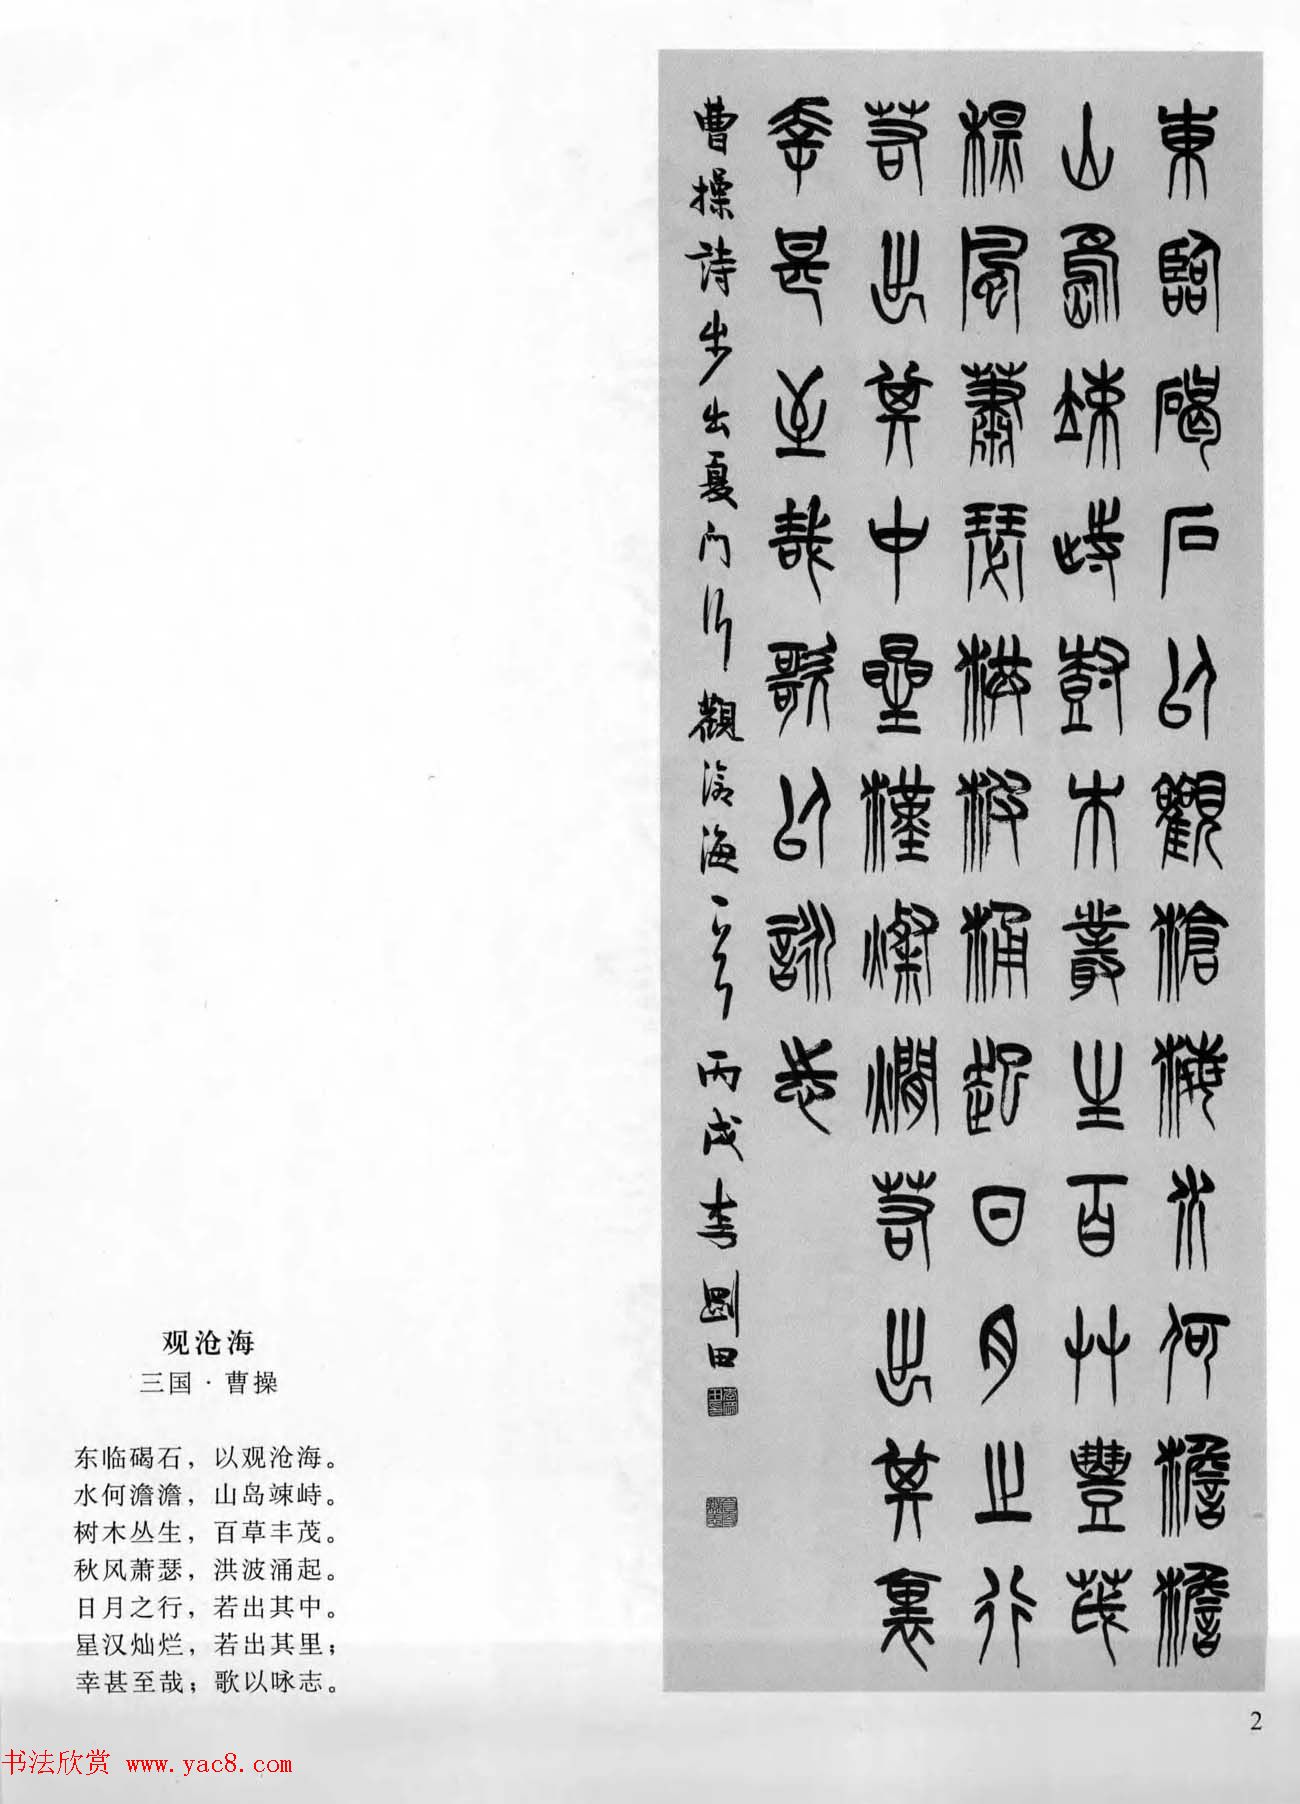 東臨碣石以觀滄海水何澹澹
山島竦峙尌木叢生百艸豐茂
秋風蕭瑟洪波涌起日月之行
若出其中星漢燦爛若出其裏
幸甚至哉歌以詠志
曹操詩步出夏门行觀滄海一首 丙戌李剛田
观沧海
三国·曹操
东临碣石，以观沧海。
水何澹澹，山岛竦峙。
树木丛生，百草丰茂。
秋风萧瑟，洪波涌起。
日月之行，若出其中。
星汉灿烂，若出其里；
幸甚至哉；歌以咏志。
2
书法欣赏 www.yac8.com